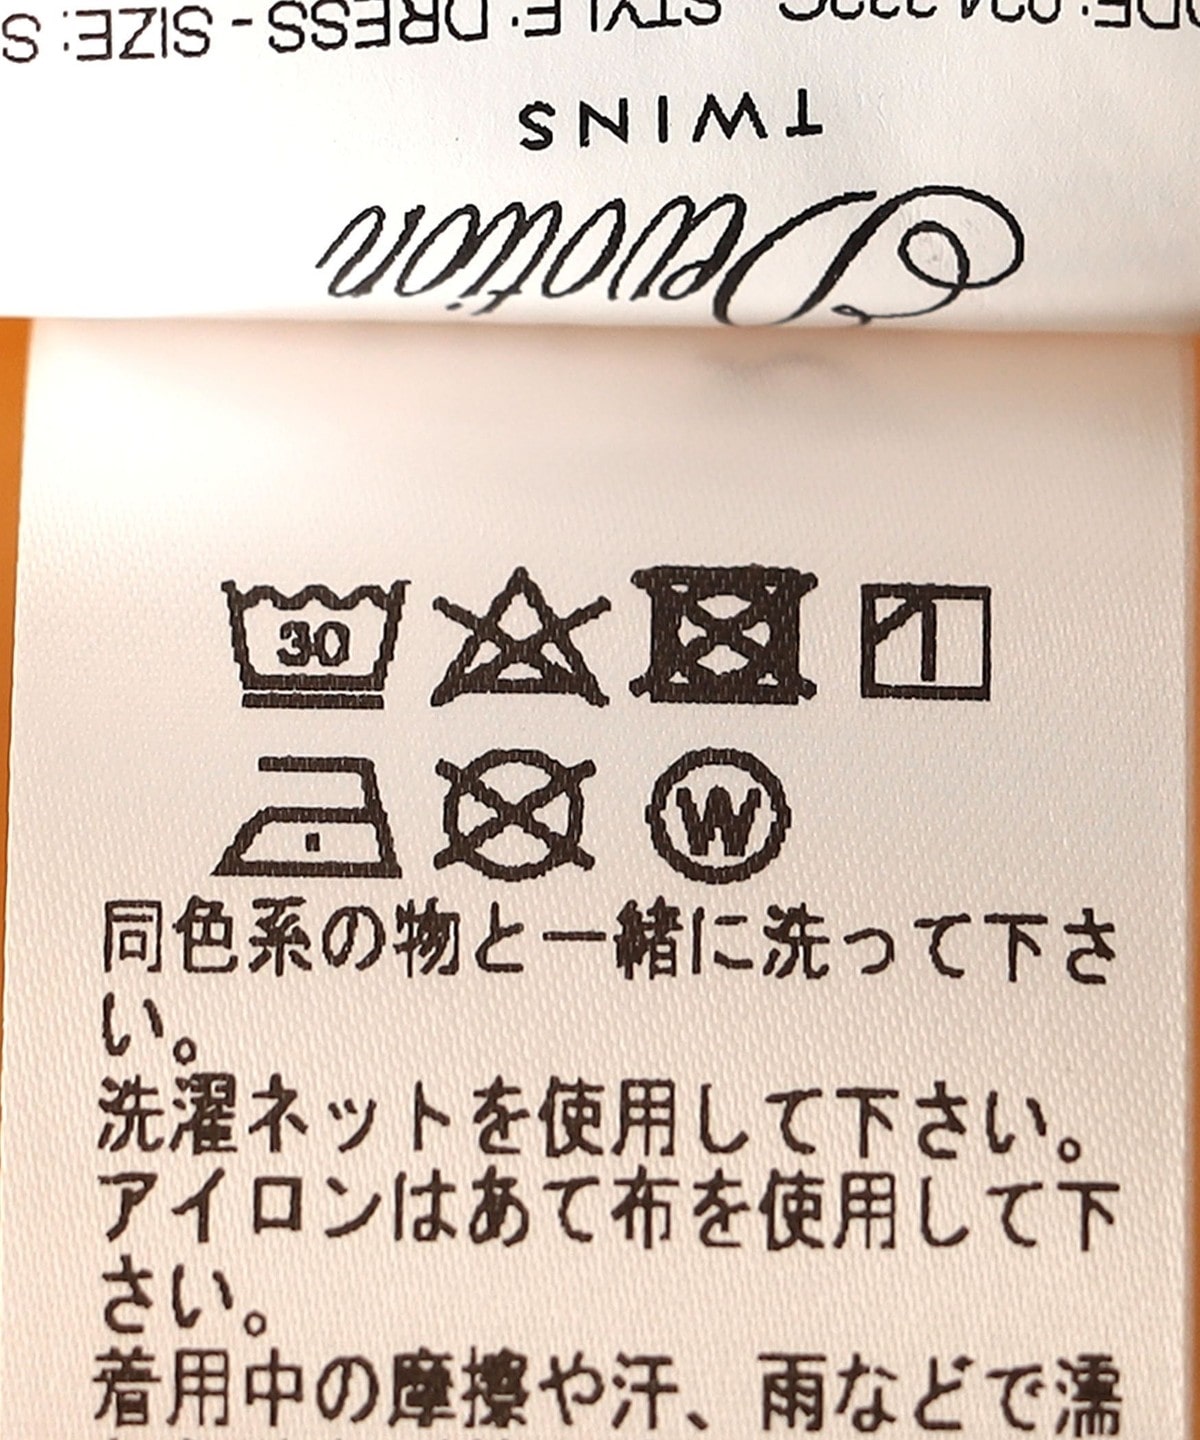 STYLE: DRESS - SIZE: S
TWINS
Devotion
30
W
同色系の物と一緒に洗って下さ
い。
洗濯ネットを使用して下さい。
アイロンはあて布を使用して下
さい。
着用中の摩擦や汗、雨などで濡